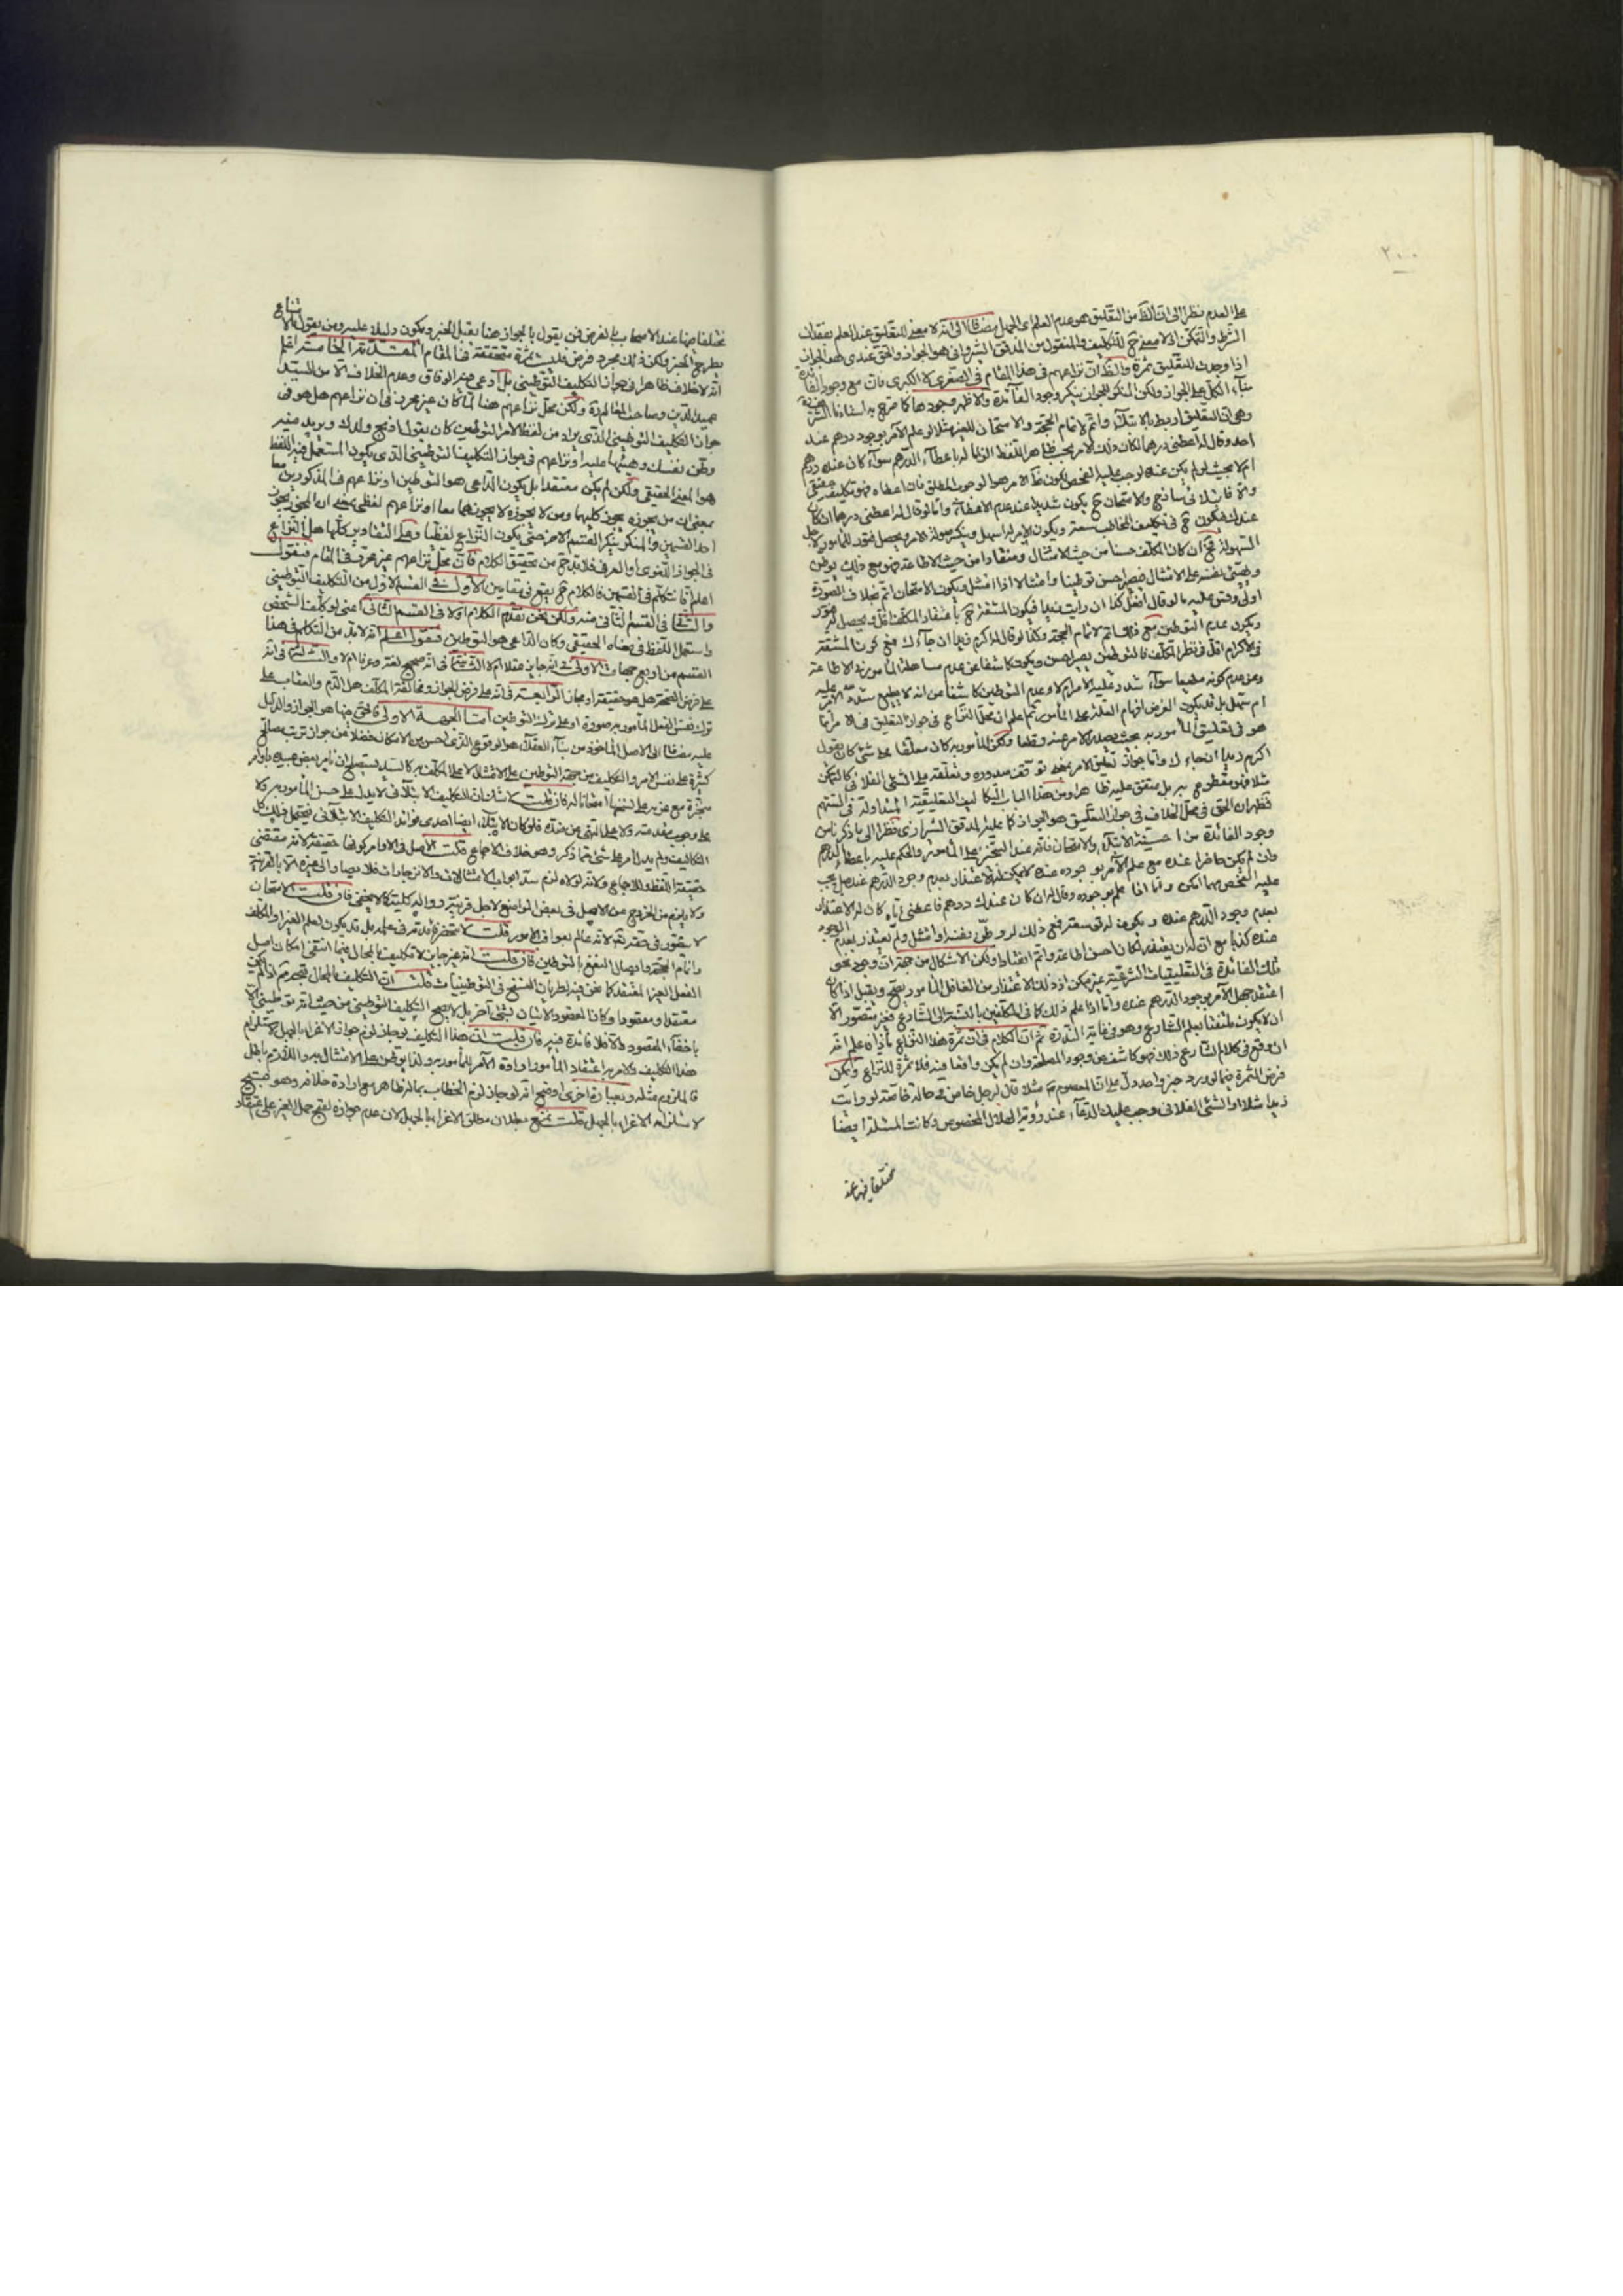 ٢٠٠
على العدم نظرا الى ان الظ من التعليق هو عدم العلم اى الجهل مضافا الى انه لا معنى للتعليق عند العلم بفقدان
الشرط والتمكن اذ لا معنى ح للتكليف والمنقول من المدقق الشيروانى هو الجواز والحق عندى هو الجواز
اذا وجدت للتعليق ثمرة والظ ان نزاعهم فى هذا المقام فى الصغرى لا الكبرى فان مع وجود الفائدة
بناء الكل على الجواز ولكن المنكر للجواز ينكر وجود الفائدة والاظهر وجودها كما صرح به
وهى ان التعليق لاتمام الحجة والامتحان للغير مثلا لو علم الآمر بوجود درهم عند
احد وقال له اعطنى درهما لكان ذلك الامر بحسب ظاهر اللفظ الزاما له باعطاء الدرهم سواء كان عنده درهم
ام لا بحيث لو لم يكن عنده لوجب عليه الفحص لكون ظ الامر هو الوجوب المطلق فان اعطاه فهو تكليف حقيقى
والا فابتلائى ساذج والامتحان ح يكون شديدا عند عدم الاعطاء واما لو قال له اعطنى درهما ان كان
عندك فيكون ح فى تكليف المخاطب سعة ويكون الامر له اسهل
السهولة فح ان كان المكلف حسنا من حيث الامتثال ومنقادا من حيث الاطاعة فهو مع ذلك يوطن
ويهيئ نفسه على الامتثال فيصير احسن توطينا وامتثالا اذا امتثل ويكون الامتحان اتم بخلاف الصورة
فى الاكرام اقل فى نظر المكلف فالتوطين يصير احسن ويكون كاشفا عن عدم مساهلة المامور فى الاطاعة
وعن عدم كونه مطيعا سواء شدد عليه الامر ام لا وعدم التوطين كاشفا عن انه لا يطيع شدد الامر عليه
ام سهل بل قد يكون الغرض افهام الغلظ على المأمور ثم اعلم ان محل النزاع فى جواز التعليق فى الامر انما
هو فى تعليق المأمور به بحيث يصدر الامر عنه وقطعا ولكن المأمور به كان معلقا على شئ كان يقول
اكرم زيدا ان جاءك واما جواز تعليق الامر بمعنى توقف صدوره وتعلقه على الشئ الفلانى كالتمكن
مثلا فهو مقطوع به بل متفق عليه ظاهرا ومن هذا الباب التكاليف التعليقية المتداولة فى السنتهم
فظهر ان الحق فى محل الخلاف فى جواز التعليق هو الجواز كما عليه المدقق الشيرازى نظرا الى ما ذكرنا من
وجود الفائدة من احسنية الابتلاء والامتحان فانه عند التنجيز على المأمور والحكم عليه باعطاء الدرهم
وان لم يكن حاضرا عنده مع علم الآمر بوجوده عنده لا يمكن له الاعتذار بعدم وجود الدرهم عنده بل يجب
عليه الفحص مهما امكن واما اذا علم بوجوده وقال له ان كان عندك درهم فاعطنى اياه كان له الاعتذار
بعدم وجود الدرهم عنده ويكون له توسعة فمع ذلك لو وطن نفسه وامتثل ولم يعتذر بعدم الوجود
عنده كذبا مع ان له ان يعتذر لكان احسن اطاعة واتم انقيادا ولكن الاشكال من جهة ان وجود نحو
تلك الفائدة فى التعليقيات الشرعية غير ممكن اذ ذلك الاعتذار من الغافل المأمور يصح ويقبل اذا كان
اعتقد جهل الآمر بوجود الدرهم عنده واما اذا علم ذلك كما فى المكلفين بالنسبة الى الشارع فغير متصور الا
ان لا يكون ملتفتا بعلم الشارع وهو فى غاية الندرة ثم ان الكلام فى ان ثمرة هذا النزاع ماذا فاعلم انه
ان وقع فى كلام الشارع ذلك فهو كاشف عن وجود المصلحة وان لم يكن واقعا فيه فلا ثمرة للنزاع ويمكن
فرض الثمرة فيما لو ورد خبر واحد دل على ان المعصوم ع مثلا قال لرجل خاص فى حالة خاصة لو رايت
زيدا مثلا او الشئ الفلانى وجب عليك الدعاء عند رؤية الهلال المخصوص وكانت المسئلة ايضا
مختلفا فيها عند
مختلفا فيها عند الاصحاب بالفرض فمن يقول بالجواز هنا يقبل الخبر ويكون دليلا عليه ومن يقول بالامتناع
يطرح الخبر ولكن ذلك مجرد فرض فليست ثمرة متحققة فى المقام المقدمة الخامسة اعلم
انه لا خلاف ظاهرا فى جواز التكليف التوطينى بل ادعى فيه الوفاق وعدم الخلاف الا من السيد
عميد الدين وصاحب المعالم ره ولكن محل نزاعهم هنا لما كان غير محرر فى ان نزاعهم هل هو فى
جواز التكليف التوطينى الذى يراد من لفظ الامر التوطين كان يقول اذبح ولدك ويريد منه
وطن نفسك وهيئها عليه او نزاعهم فى جواز التكليف التوطينى الذى يكون المستعمل فيه اللفظ
هو المعنى الحقيقى ولكن لم يكن معتقدا بل يكون الداعى هو التوطين او نزاعهم فى المذكورين معا
بمعنى ان من يجوزه يجوز كليهما ومن لا يجوزه لا يجوزهما معا او نزاعهم لفظى بمعنى ان المجوز يجوز
احد القسمين والمنكر ينكر القسم الآخر حتى يكون النزاع لفظيا وعلى التقادير كلها هل النزاع
فى الجواز اللغوى او العرفى فلا بد ح من تحقيق الكلام فان محل نزاعهم غير محرر فى المقام فنقول
اعلم انا نتكلم فى القسمين فالكلام ح يقع فى مقامين الاول فى القسم الاول من التكليف التوطينى
والثانى فى القسم الثانى منه ولكن نحن نقدم الكلام اولا فى القسم الثانى اعنى لو كلف الشخص
واستعمل اللفظ فى معناه الحقيقى وكان الداعى هو التوطين فنقول اعلم انه لا بد من التكلم فى هذا
القسم من اربع جهات الاولى فى انه جايز عقلا ام لا الثانية فى انه صحيح لغة وعرفا ام لا والثالثة فى انه
على فرض الصحة هل هو حقيقة او مجاز الرابعة فى انه على فرض الجواز ومخالفة المكلف هل الذم والعقاب على
ترك نفس الفعل المأمور به صورة او على ترك التوطين اما الجهة الاولى فالحق فيها هو الجواز والدليل
عليه مضافا الى الاصل الماخوذ من بناء العقلاء هو الوقوع الذى اخص من الامكان فضلا عن جواز ترتب مصالح
كثيرة على نفس الامر والتكليف من جهة التوطين على الامتثال
على وجوب مقدمته ولا على النهى عن ضده فلو كان الابتلاء ايضا احدى فوائد التكليف الابتلائى فيحتمل فى كل
التكاليف ولم يدل امر على شئ مما ذكر وهو خلاف الاجماع قلت الاصل فى الاوامر كونها حقيقة لانه مقتضى
حقيقة اللفظ وللاجماع ولانه لولاه لزم سد ابواب الامتثالات والانزجارات فلا يصار الى غيره الا بالقرينة
ولا يلزم من الخروج عن الاصل فى بعض المواضع لاجل قرينة زوال كليته كما لا يخفى فان قلت الامتحان
لا يتصور فى حقه تعالى لانه عالم بعواقب الامور قلت لا تنحصر فائدته فى علمه بل قد يكون لعلم الغير او المكلف
واتمام الحجة وايصال النفع بالتوطين فان قلت انه غير جايز لانه تكليف بالمحال فيما انتفى امكان اصل
الفعل الغير المعتقد كما نحن فيه لطريان النسخ فى التوطينيات قلت ان التكليف بالمحال قبيح
معتقدا ومقصودا وكان المقصود الاتيان بشئ آخر بل لا يصح التكليف التوطينى من حيث انه توطينى الا
باخفاء المقصود والا فلا فائدة فيه فان قلت ان هذا التكليف لو جاز لزم جواز الاغراء بالجهل لاستلزام
هذا التكليف والامر به اعتقاد المأمور ارادة الآمر للمأمور به ولذا يوطن على الامتثال به واللازم باطل
فالملزوم مثله وبعبارة اخرى اوضح انه لو جاز لزم الخطاب بما له ظاهر مع ارادة خلافه وهو قبيح
لاستلزامه الاغراء بالجهل قلت نمنع بطلان مطلق الاغراء بالجهل لان عدم جوازه لقبح حمل الغير على اعتقاد